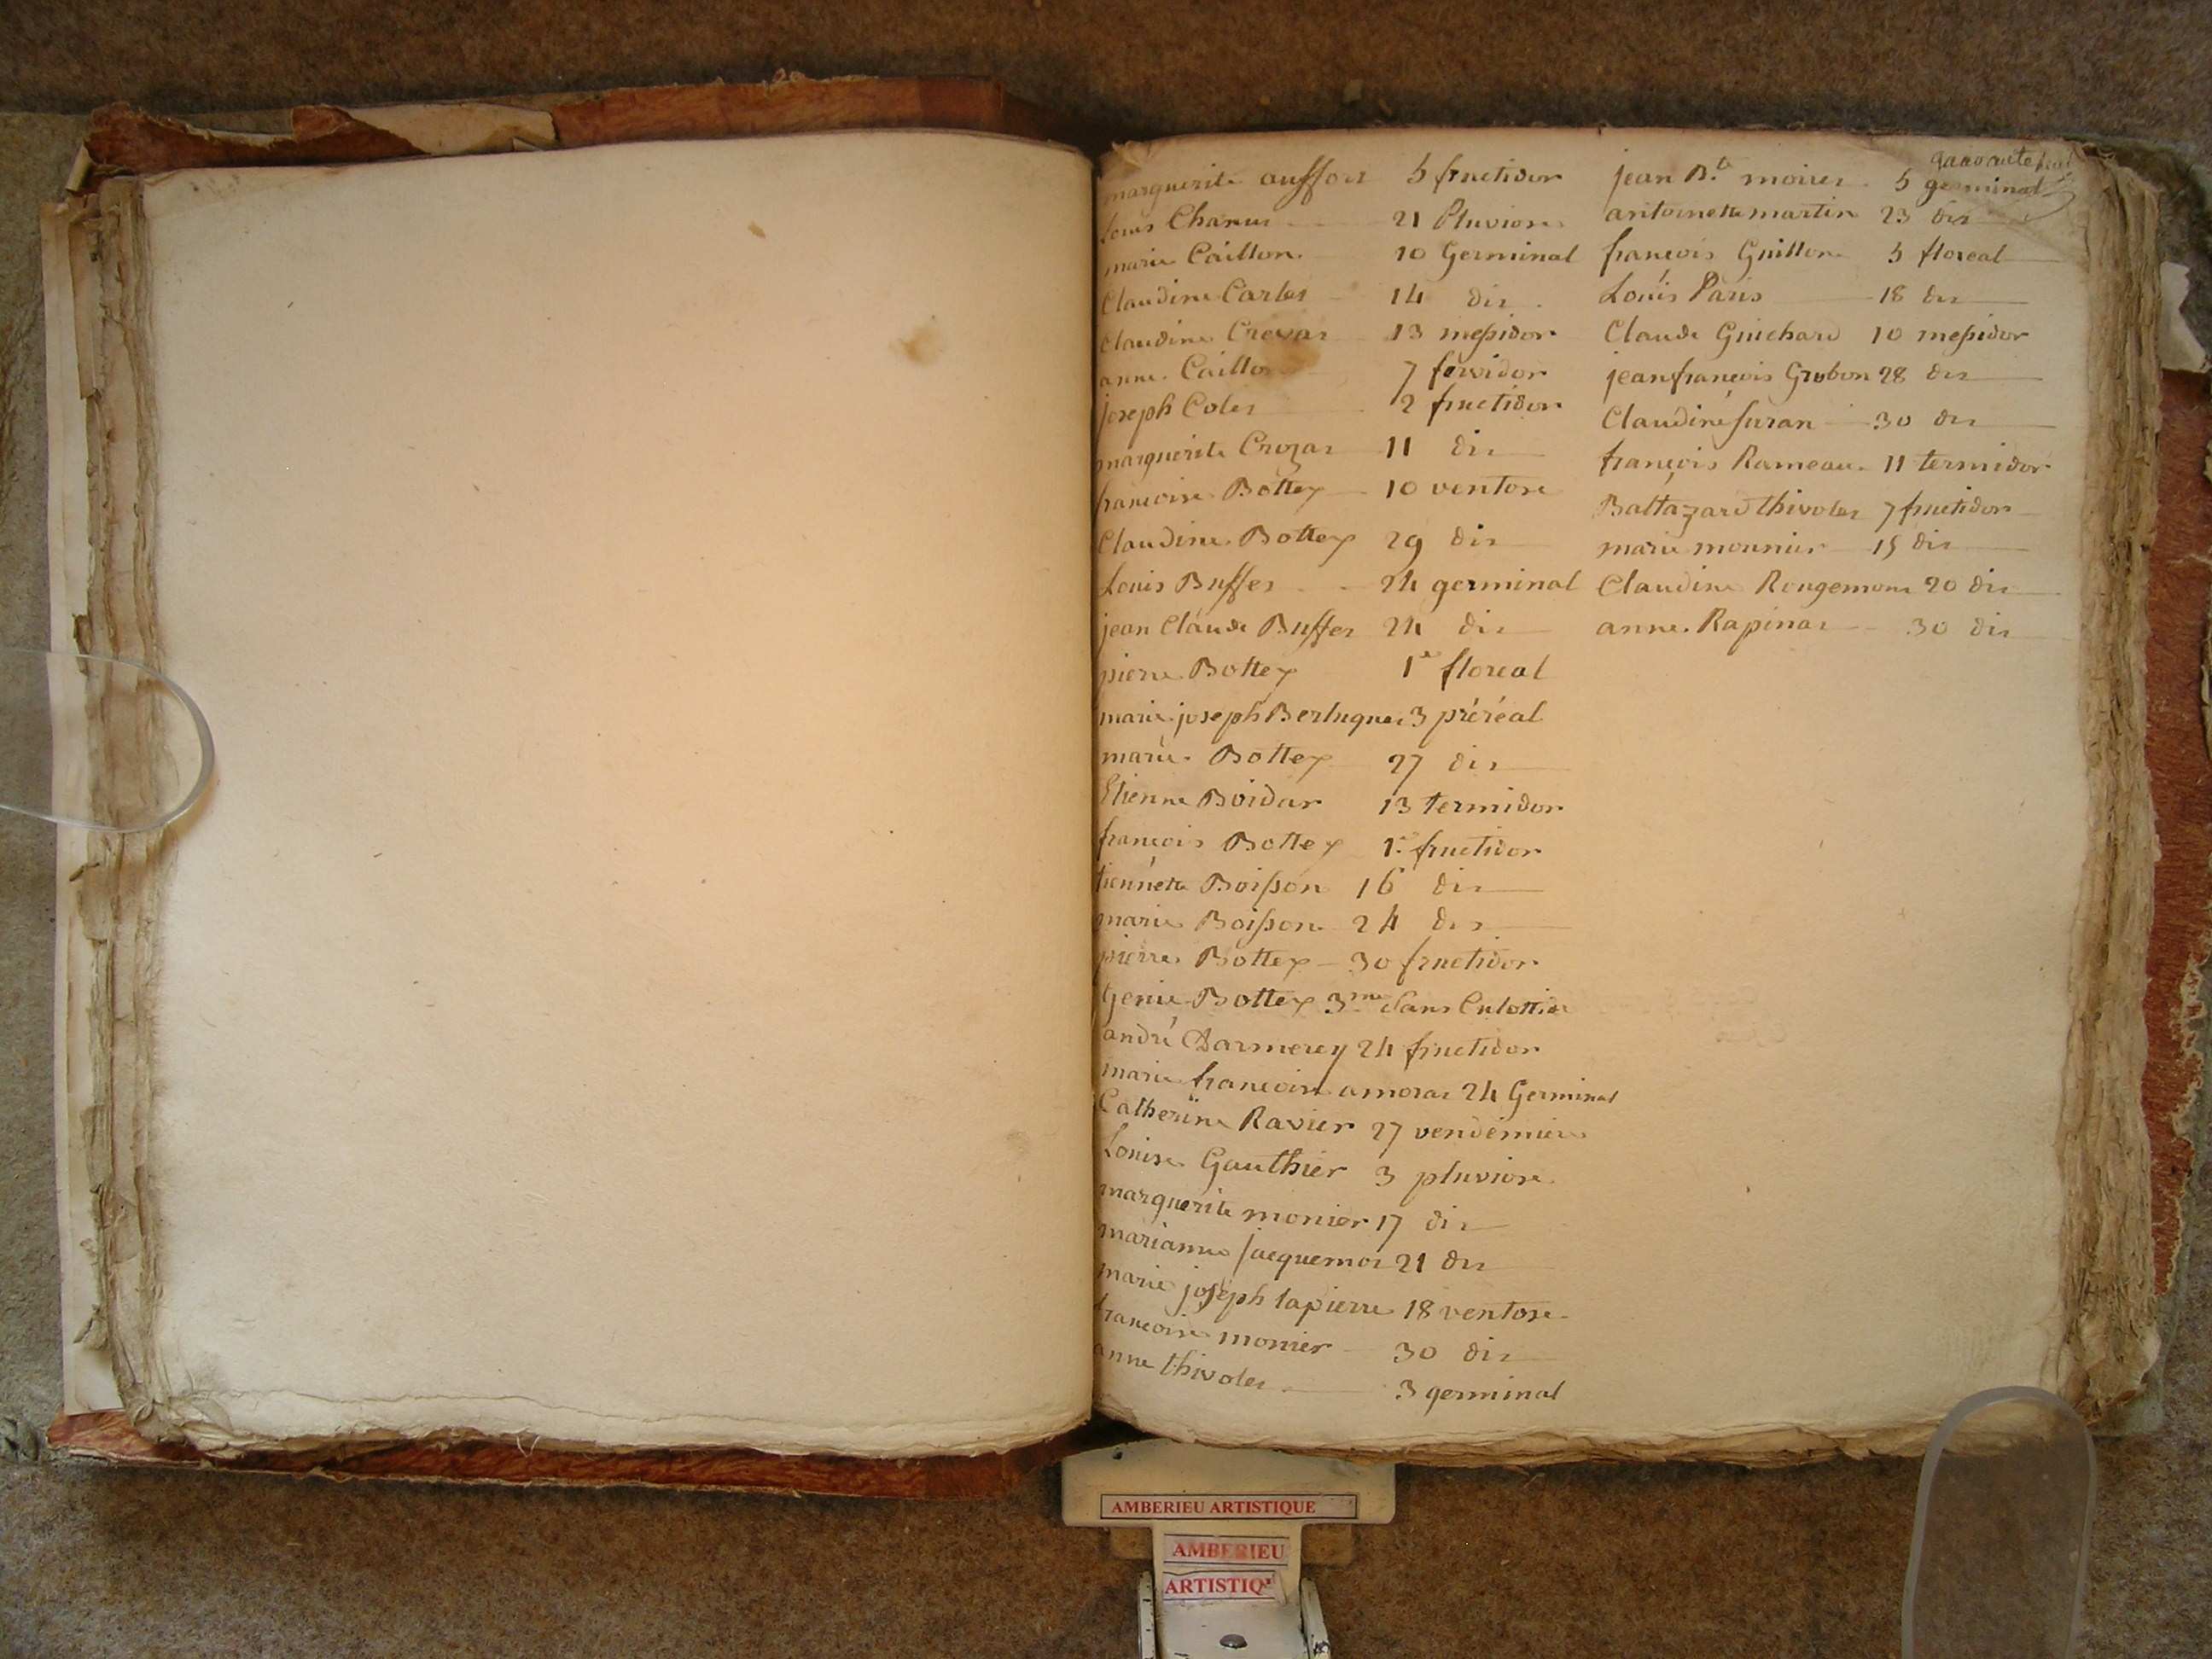 marguerite auffort 5 fructidor
Louis Charuet 21 Pluviose
marie Caillon 10 Germinal
Claudine Carlot 14 dit
Claudine Crevat 13 messidor
anne Caillon 7 fervidor
joseph Colet 2 fructidor
marguerite Crozat 11 dit
francoise Bottex 10 ventose
Claudine Bottex 29 dit
Louis Buffet 24 germinal
jean Claude Buffet 24 dit
pierre Bottex 1er floreal
marie joseph Berluquet 3 préréal
marie Bottex 27 dit
Etienne Boidar 13 termidor
francois Bottex 1er fructidor
tiennete Boisson 16 dit
marie Boisson 24 dit
pierre Bottex 30 fructidor
Genie Bottex 3me Sans Culottide
andré Darmerey 24 fructidor
marie francoise amorat 24 Germinal
Catherine Ravier 27 vendemiere
Louise Gauthier 3 pluviose
marguerite monier 17 dit
marianne jacquemot 21 dit
marie joseph lapierre 18 ventose
francoise monier 30 dit
anne thivolet 3 germinal
quarante
jean Bte moiret 5 germinal
antoinette martin 23 dit
francois Guillon 5 floreal
Louis Paris 18 dit
Claude Guichard 10 messidor
jean francois Grobon 28 dit
Claudine juran 30 dit
françois Rameau 11 termidor
Baltazard thivolet 7 fructidor
marie mounier 15 dit
Claudine Rougemont 20 dit
anne Rapinat 30 dit
AMBERIEU ARTISTIQUE
AMBERIEU
ARTISTIQ